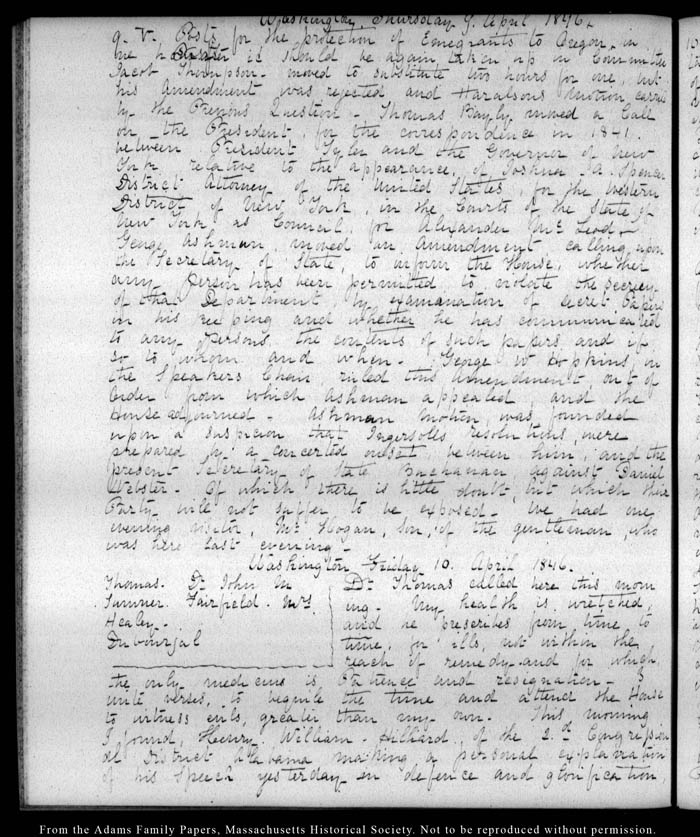 Washington Thursday 9. April 1846.
9. V. Posts for the protection of Emigrants to Oregon, in
is should be again taken up in Committee
Jacob Thompson moved to substitute two hours for one, but
his amendment was rejected and Haralson's motion carried
by the Previous Question - Thomas Bayly moved a Call
on the President, for the correspondence in 1841.
between President Tyler and the Governor of New
York relative to the appearance, of Joshua A. Spencer
District Attorney of the United States, for the Western
District of New York, in the Courts of the State of
New York as Council for Alexander Mc Leod -
George Ashmun moved an amendment calling upon
the Secretary of State, to inform the House, whether
any person has been permitted, to violate the secrecy
of that Department, by examination of secret papers
in his keeping and whether he has communicated
to any persons the contents of such papers and if
so to whom and when - George W Hopkins, in
the Speakers Chair, ruled this amendment, out of
Order from which Ashmun appealed, and the
House adjourned - Ashmun motion, was founded
upon a suspicion that Ingersolls resolutions, were
prepared by a concerted onset, between him, and the
present Secretary of State Buchanan against Daniel
Webster - Of which there is little doubt, but which their
Party will not suffer to be exposed - We had one
evening visitor, Mr Hogan, Son, of the gentleman, who
was here last evening -
Washington Friday 10. April 1846.
Thomas. Dr. John M
Sumner. Fairfield. Mrs.
Healey.
Dubourjal
Dr. Thomas called here this morn
ing - My health is wretched,
and he prescribes from time to
time, for ills, not within the
reach of remedy and for which,
the only medicine is Patience and resignation - I
write verses, to beguile the time and attend the House
to witness evils, greater than my own. This morning
I found, Henry William Hilliard, of the 2.d Congression
al District Alabama making a personal explanation
of his Speech yesterday in defence and glorification,
From the Adams Family Papers, Massachusetts Historical Society. Not to be reproduced without permission.